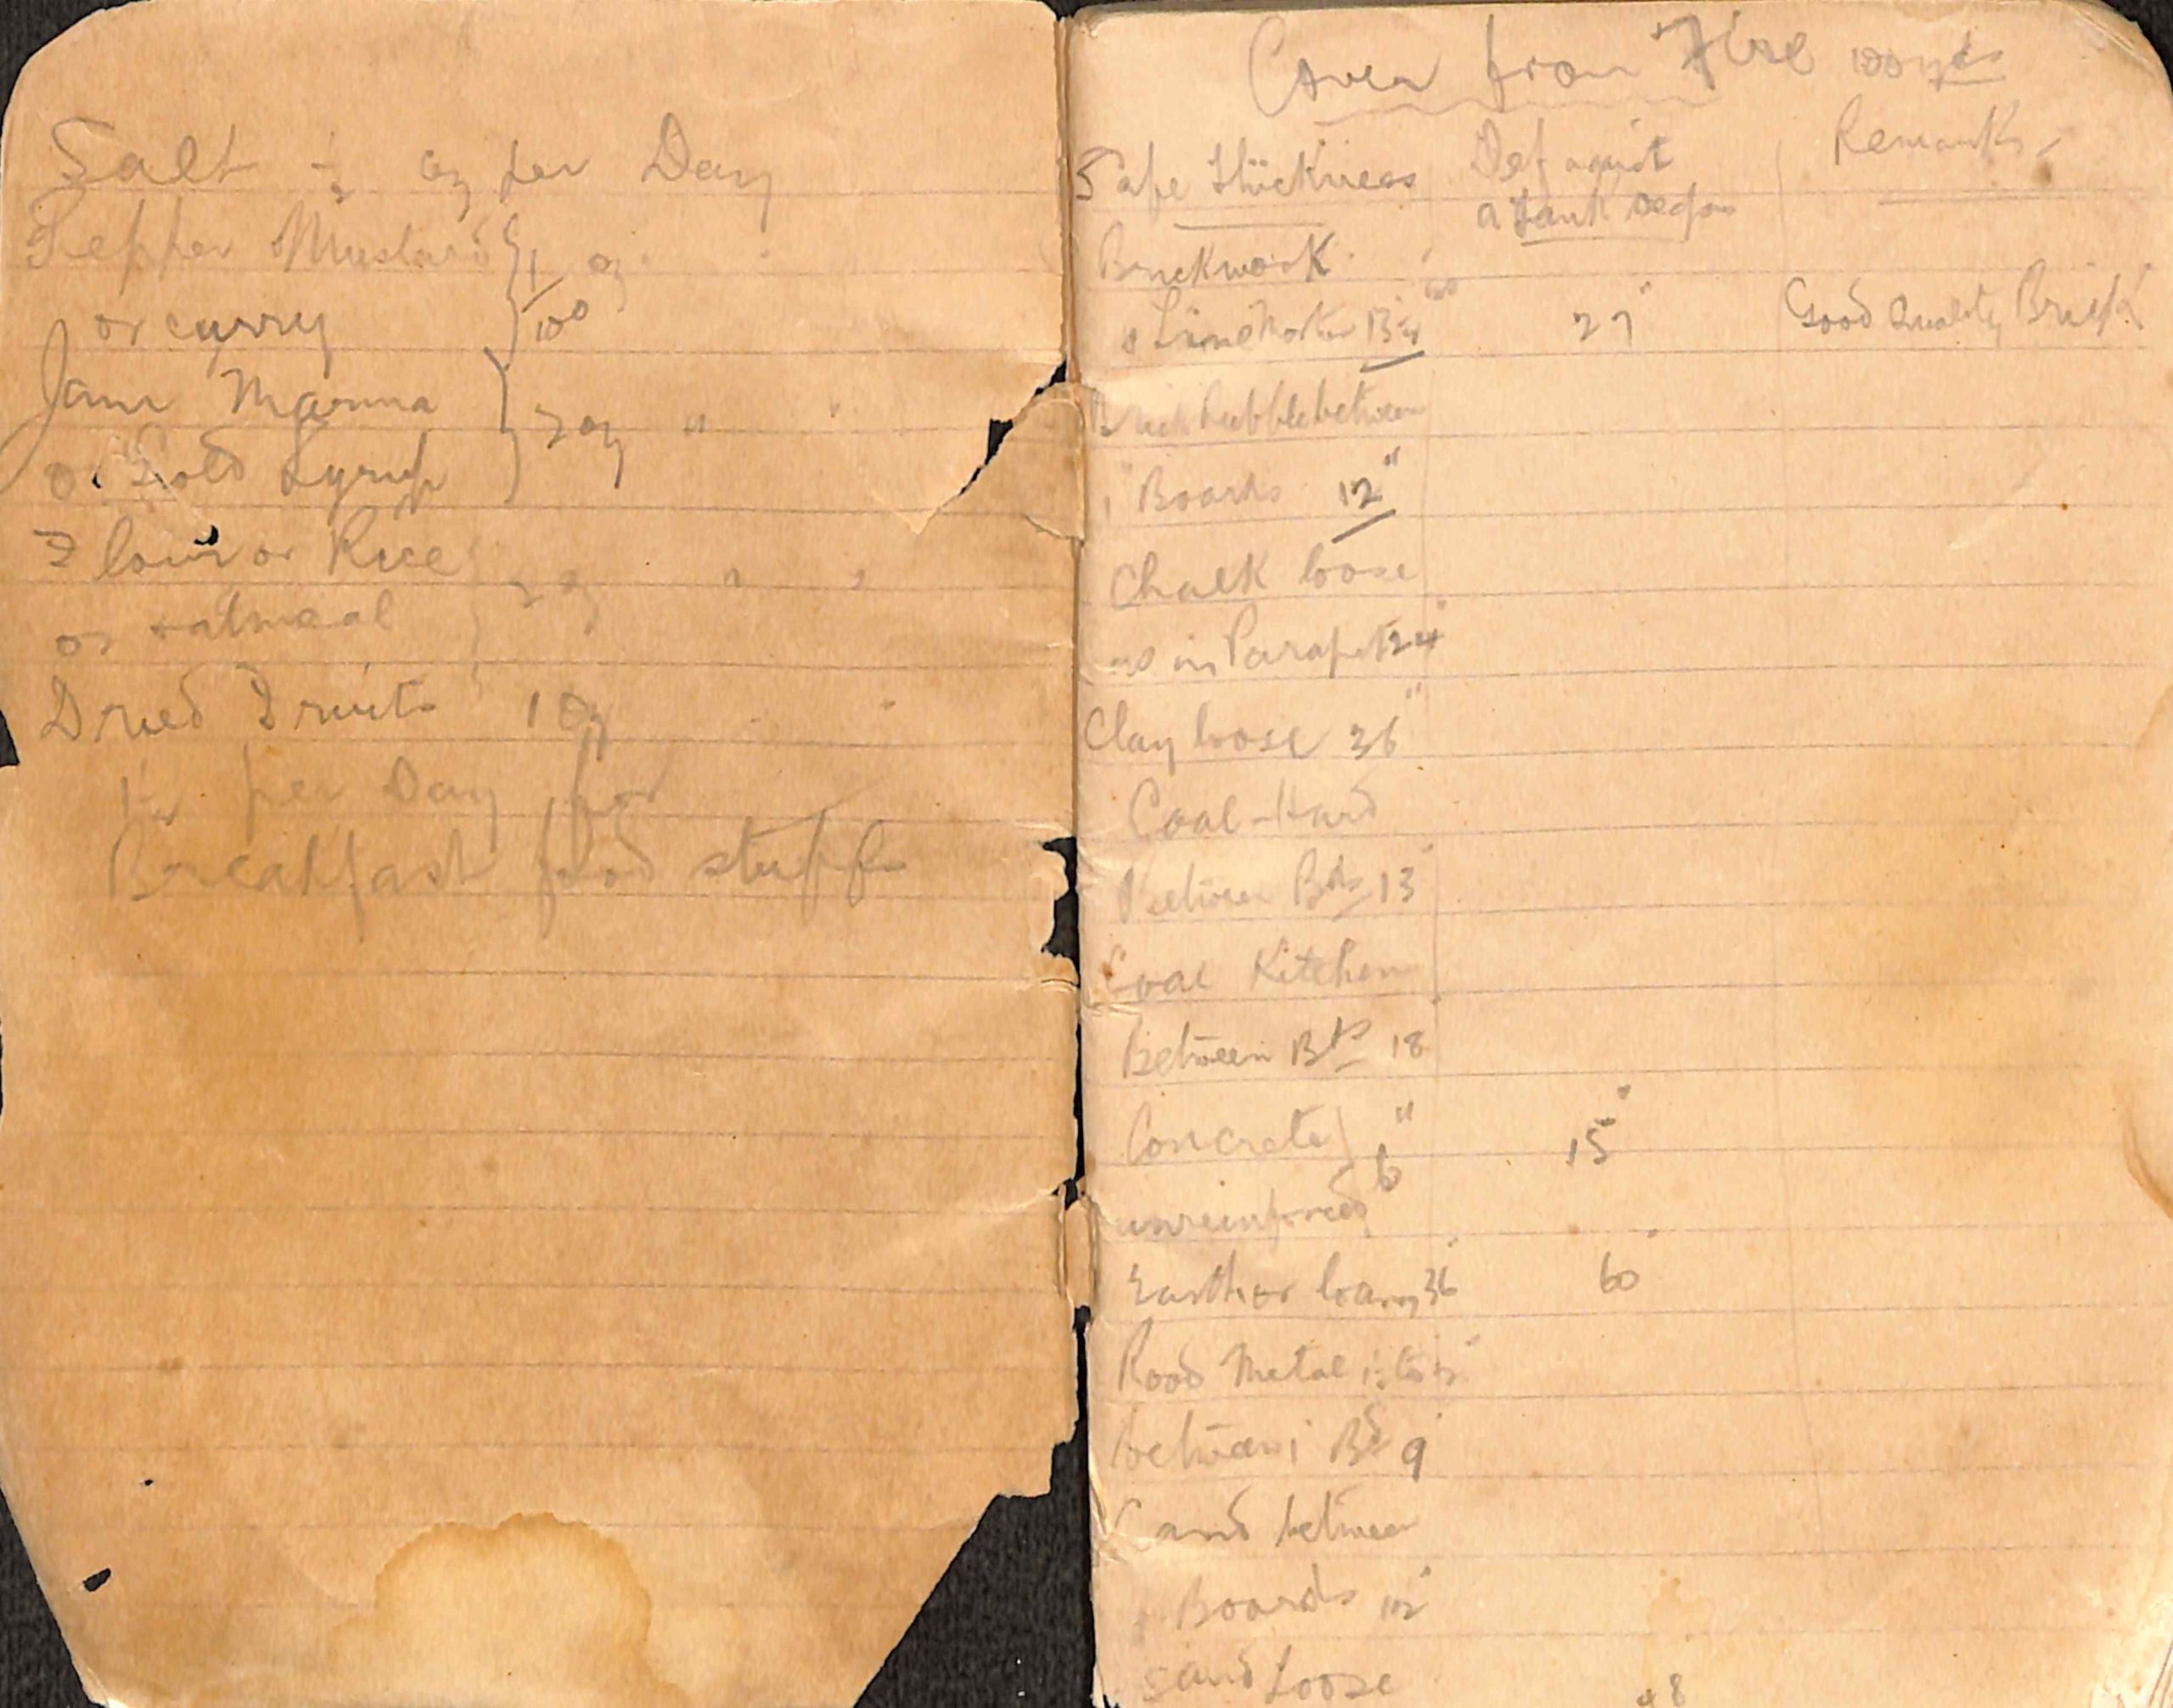 Salt ½ oz per Day
Pepper Mustard } 1/100 oz " "
or curry
Jam Marma } 2 oz " "
or Gold Syrup
Flour or Rice } 2 oz " "
or oatmeal
Dried Fruits 1 oz " "
per Day for
Breakfast food stuffs
Cover from Fire 100 yds
Safe Thickness Def against Remarks
a tank weapon
Brickwork
Lime Mortar 13½" 27" Good Quality Brick
Brick Rubble between
1" Boards 12"
Chalk loose
as in Parapet 24"
Clay loose 36"
Coal-Hard
Between Bds 13"
Coal Kitchen
Between Bds 18
Concrete } 6" 15"
unreinforced
Earth or loam 36" 60"
Road Metal
between 1" Bds 9"
Sand between
1" Boards 12"
Sand Loose 48